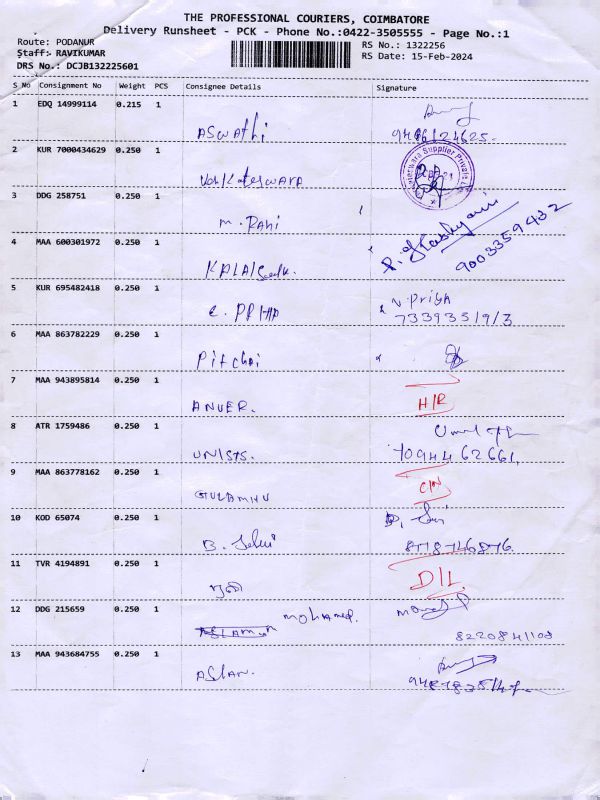 THE PROFESSIONAL COURIERS, COIMBATORE
Delivery Runsheet - PCK - Phone No.:0422-3505555 - Page No.:1
Route: PODANUR
RS No.: 1322256
Staff: RAVIKUMAR
RS Date: 15-Feb-2024
DRS No.: DCJB132225601
S No Consignment No Weight PCS Consignee Details Signature
1 EDQ 14999114 0.215 1
ASWAthi
2 KUR 7000434629 0.250 1
Supplier Private
3 DDG 258751 0.250 1
M. RANI
4 MAA 600301972 0.250 1
9003359432
5 KUR 695482418 0.250 1
V. Priya
733935/9/3
6 MAA 863782229 0.250 1
Pitchai
7 MAA 943895814 0.250 1
ANVER. H/R
8 ATR 1759486 0.250 1
UNISTS. 7094462661
9 MAA 863778162 0.250 1
GULAMHU C/N
10 KOD 65074 0.250 1
B. Selvi 8778746876.
11 TVR 4194891 0.250 1
D/L
12 DDG 215659 0.250 1
MOHAMED.
8220841108
13 MAA 943684755 0.250 1
ASLAN.